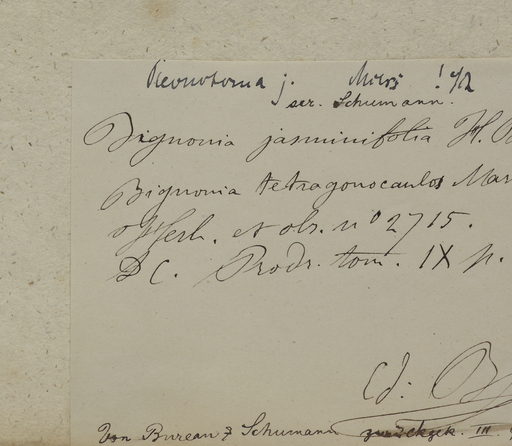 Pleonotoma j. Miers ! 9/2
scr. Schumann.
Bignonia jasminifolia H. B
Bignonia tetragonocaulos Mar
Herb. et obs. nº 2715.
DC. Prodr. tom. IX p.
Ed. B
Von Bureau & Schumann zurückgek. III.